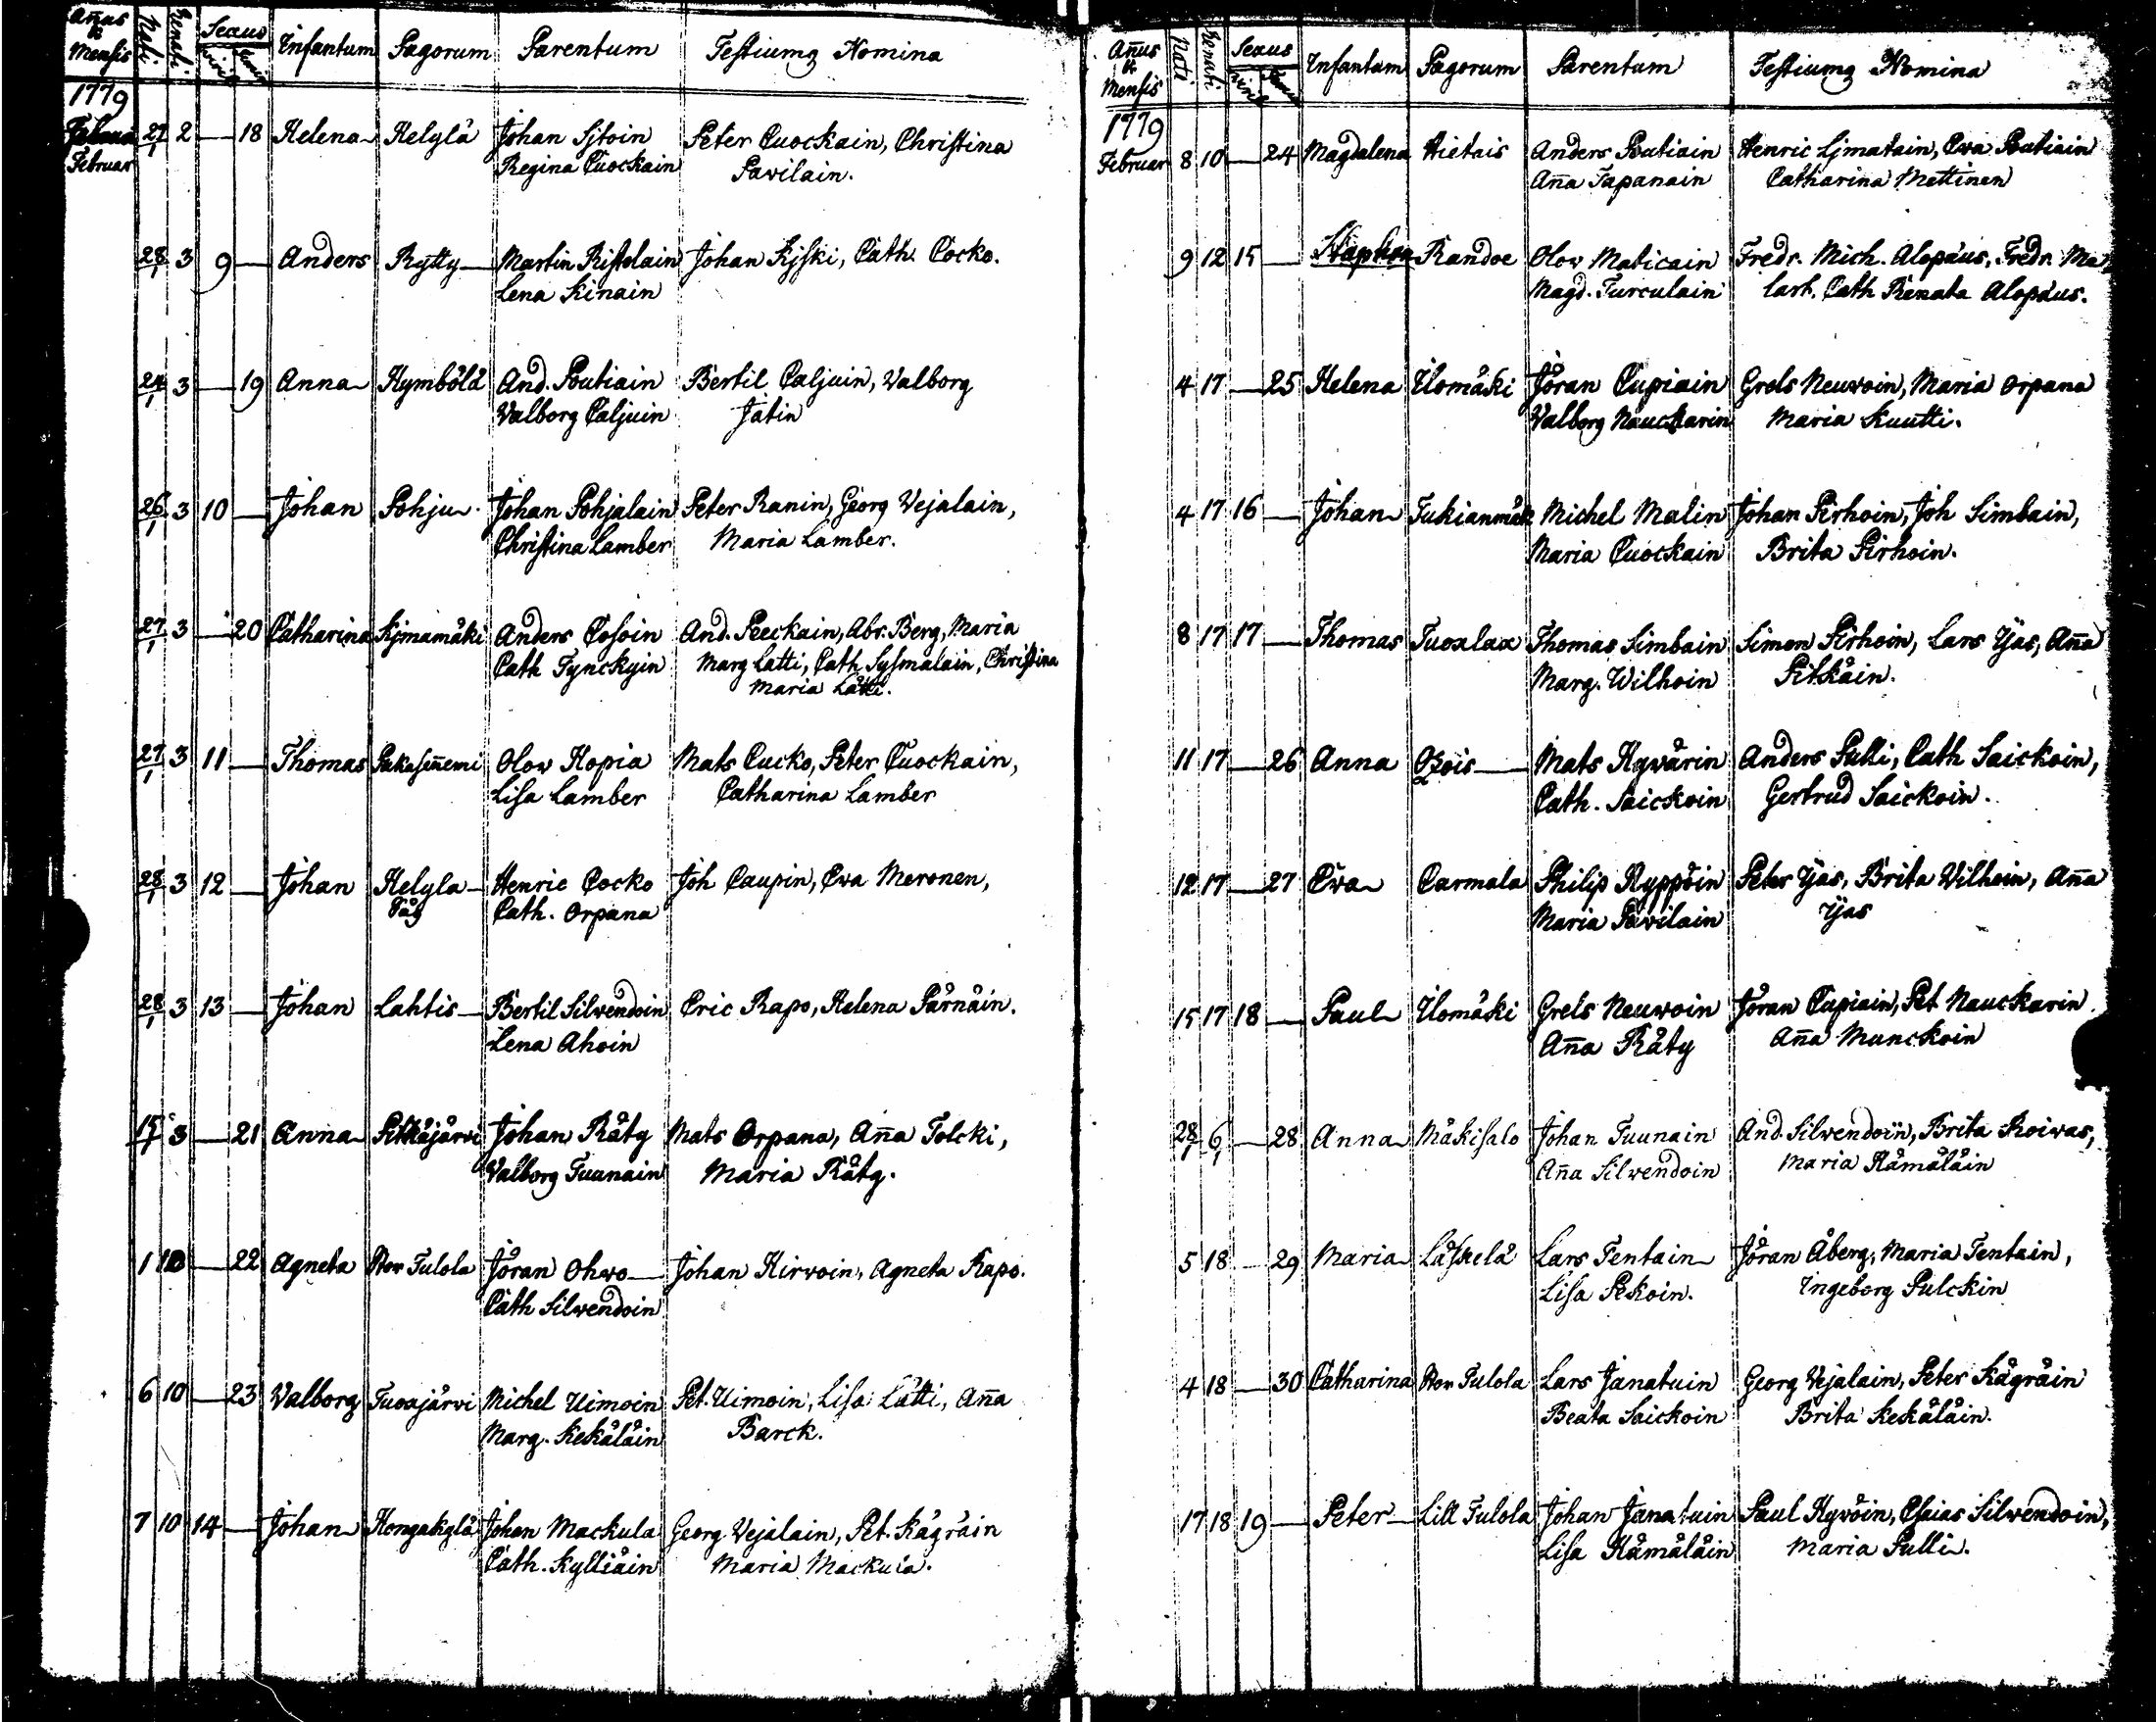 Añus & Mensis Nati Renati Sexus Infantum Pagorum Parentum Testiumq Nomina
1779
Februar 27/1 2 — 18 Helena Helylä Johan Sjtoin Peter Cuockain, Christina
Regina Cuockain Pavilain.
28/1 3 9 — Anders Rytty Martin Ristolain Johan Kjski, Cath. Cocko.
Lena Kinain
24/1 3 — 19 Anna Kymbölä And. Poutiain Bertil Caljuin, Valborg
Valborg Caljuin Jatin
26/1 3 10 — Johan Pohju Johan Pohjalain Peter Ranin, Georg Vejalain,
Christina Lamber Maria Lamber.
27/1 3 — 20 Catharina Kjmamäki Anders Cosoin And. Peeckain, Abr. Berg, Maria
Cath Tynckyin Marg Latti, Cath Sysmalain, Christina
Maria Lätti.
27/1 3 11 — Thomas Olov Hopia Mats Cucko, Peter Cuockain,
Lisa Lamber Catharina Lamber
28/1 3 12 — Johan Helyla Henric Cocko Joh Caupin, Ewa Meronen,
Såg Cath. Orpana
28/1 3 13 — Johan Lahtis Bertil Silvendoin Eric Rapo, Helena Pärnäin.
Lena Ahoin
15/1 3 — 21 Anna Pitkäjärvi Johan Räty Mats Orpana, Aña Tolcki,
Valborg Tuunain Maria Räty.
1 10 — 22 Agneta Stor Tulola Jöran Ohvo Johan Hirvoin, Agneta Rapo.
Cath Silvendoin
6 10 — 23 Valborg Tuoxjärvi Michel Uimoin Pet. Uimoin, Lisa Lätti, Aña
Marg. Kekäläin Barck.
7 10 14 — Johan Hongakylä Johan Mackula Georg Vejalain, Pet. Kägräin
Cath. Kylliäin Maria Mackula.
Añus & Mensis Nati Renati Sexus Infantum Pagorum Parentum Testiumq Nomina
1779
Februar 8 10 — 24 Magdalena Hietais Anders Poutiain Henric Ljmatain, Ewa Poutiain
Aña Tapanain Catharina Mettinen
9 12 15 — Staphan Randoe Olov Maticain Fredr. Mich. Alopäus, Fredr. Ma
Magd. Turculain lart. Cath Renata Alopäus.
4 17 — 25 Helena Ilomäki Jöran Cupiain Grels Neuvoin, Maria Orpana
Valborg Nauckarin Maria Kuutti.
4 17 16 — Johan Tukianmäk Michel Malin Johan Pirhoin, Joh Simbain,
Maria Cuockain Brita Pirhoin.
8 17 17 — Thomas Tuoxlax Thomas Simbain Simon Pirhoin, Lars Yjas, Aña
Marg. Wilhoin Pitkäin.
11 17 — 26 Anna Mats Hyvärin Anders Pulli, Cath Saickoin,
Cath. Saickoin Gertrud Saickoin.
12 17 — 27 Ewa Carmala Philip Ryppöin Peter Yjas, Brita Vilhoin, Aña
Maria Pavilain Yjas
15 17 18 — Paul Ilomäki Grels Neuvoin Jöran Cupiain, Pet Nauckarin
Aña Räty Aña Munckoin
28/1 6/1 — 28 Anna Mäkisalo Johan Tuunain And. Silvendoin, Brita Koivas,
Aña Silvendoin Maria Hämäläin
5 18 — 29 Maria Läskelä Lars Tentain Jöran Åberg, Maria Tentain,
Lisa Pekoin. Ingeborg Pulckin
4 18 — 30 Catharina Stor Tulola Lars Janatuin Georg Vejalain, Peter Kägräin
Beata Saickoin Brita Kekäläin.
17 18 19 — Peter Lill Tulola Johan Janatuin Paul Hyvöin, Esaias Silvendoin,
Lisa Hämäläin Maria Pulli.